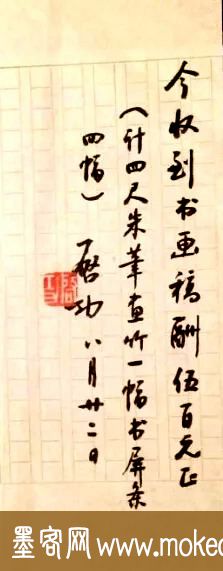 今收到书画稿酬伍百元正
（计四尺朱笔画竹一幅书屏条
四幅）
启功 八月廿二日
墨客网 www.mokec